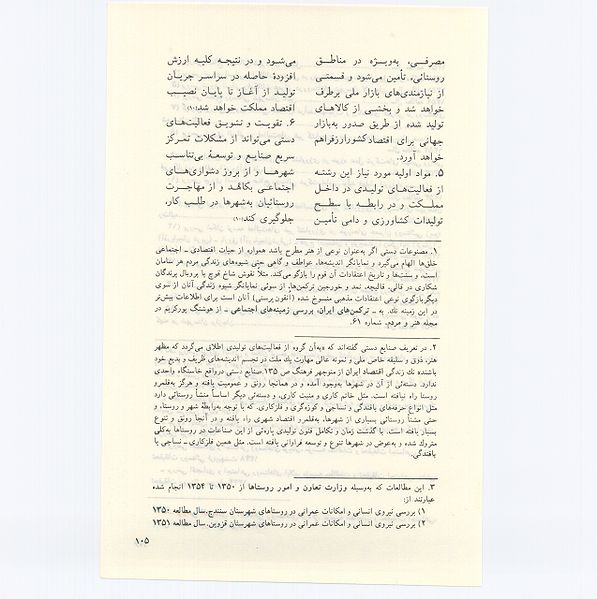 مصرفی، به‌ویژه در مناطق
روستائی، تأمین می‌شود و قسمتی
از نیازمندی‌های بازار ملی برطرف
خواهد شد و بخشی از کالاهای
تولید شده از طریق صدور به‌بازار
جهانی برای اقتصاد کشور ارز فراهم
خواهد آورد.
۵. مواد اولیه مورد نیاز این رشته
از فعالیت‌های تولیدی در داخل
مملکت و در رابطه با سطح
تولیدات کشاورزی و دامی تأمین
می‌شود و در نتیجه کلیه ارزش
افزودهٔ حاصله در سراسر جریان
تولید از آغاز تا پایان نصیب
اقتصاد مملکت خواهد شد(۱۰)
۶. تقویت و تشویق فعالیت‌های
دستی می‌تواند از مشکلات تمرکز
سریع صنایع و توسعهٔ بی‌تناسب
شهرها و از بروز دشواری‌های
اجتماعی بکاهد و از مهاجرت
روستائیان به‌شهرها در طلب کار،
جلوگیری کند(۱۰)
۱. مصنوعات دستی اگر به‌عنوان نوعی از هنر مطرح باشد همواره از حیات اقتصادی ـ اجتماعی
خلق‌ها الهام می‌گیرد و نمایانگر اندیشه‌ها، عواطف و گاهی حتی شیوه‌های زندگی مردم هر سامان
است. و سنت‌ها و تاریخ اعتقادات آن قوم را بازگو می‌کند. مثلا نقوش شاخ قوچ یا پر و بال پرندگان
شکاری در قالی، قالیچه، نمد و خورجین ترکمن‌ها، از سوئی نمایانگر شیوه زندگی آنان از سوی
دیگر بازگوی نوعی اعتقادات مذهبی منسوخ شده (آنقون پرستی) آنان است برای اطلاعات بیش‌تر
در این زمینه نك. به ـ ترکمن‌های ایران، بررسی زمینه‌های اجتماعی ـ از هوشنگ پورکریم در
مجله هنر و مردم، شماره ۶۱.
۲. در تعریف صنایع دستی گفته‌اند که «به‌آن گروه از فعالیت‌های تولیدی اطلاق می‌گردد که مظهر
هنر، ذوق و سلیقه خاص ملی و نمونه عالی مهارت یك ملت در تجسم اندیشه‌های ظریف و بدیع خود
باشد» نك زندگی اقتصاد ایران از منوچهر فرهنگ ص ۱۳۵. صنایع دستی درواقع خاستگاه واحدی
ندارد. دسته‌ئی از آن در شهرها به‌وجود آمده و در همانجا رونق و عمومیت یافته و هرگز به‌قلمرو
روستا راه نیافته است. مثل خاتم کاری و منبت کاری، و دسته‌ئی دیگر اساساً منشأ روستائی دارد
مثل انواع حرفه‌های بافندگی و نساجی و کوزه‌گری و فلزکاری. که با توجه به‌رابطهٔ شهر و روستا، و
حتی منشأ روستائی بسیاری از شهرها، به‌قلمرو اقتصاد شهری راه یافته و در آنجا رونق و تنوع
بسیار یافته است. با گذشت زمان و تکامل فنون تولیدی پاره‌ئی از این صناعات در روستاها به‌کلی
متروك شده و به‌عوض در شهرها تنوع و توسعه فراوانی یافته است. مثل همین فلزکاری ـ نساجی یا
بافندگی.
۳. این مطالعات که به‌وسیله وزارت تعاون و امور روستاها از ۱۳۵۰ تا ۱۳۵۴ انجام شده
عبارتند از:
۱) بررسی نیروی انسانی و امکانات عمرانی در روستاهای شهرستان سنندج. سال مطالعه ۱۳۵۰
۲) بررسی نیروی انسانی و امکانات عمرانی در روستاهای شهرستان قزوین. سال مطالعه ۱۳۵۱
۱۰۵